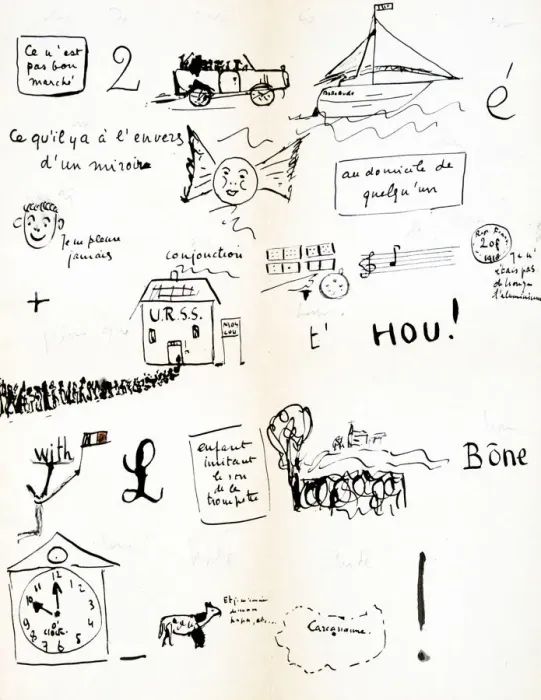 Ce n'est
pas bon
marché
2
é
Ce qu'il y a à l'envers
d'un miroir
au domicile de
quelqu'un
Je ne pleure
jamais
conjonction
Rep. Fran.
20f
+
U.R.S.S.
MOSCOU
t'
HOU!
with
L
enfant
imitant
le son
de la
trompette
Bône
12
11
1
10
2
9
3
8
4
7
5
6
O'
Clock
—
Carcassonne.
!